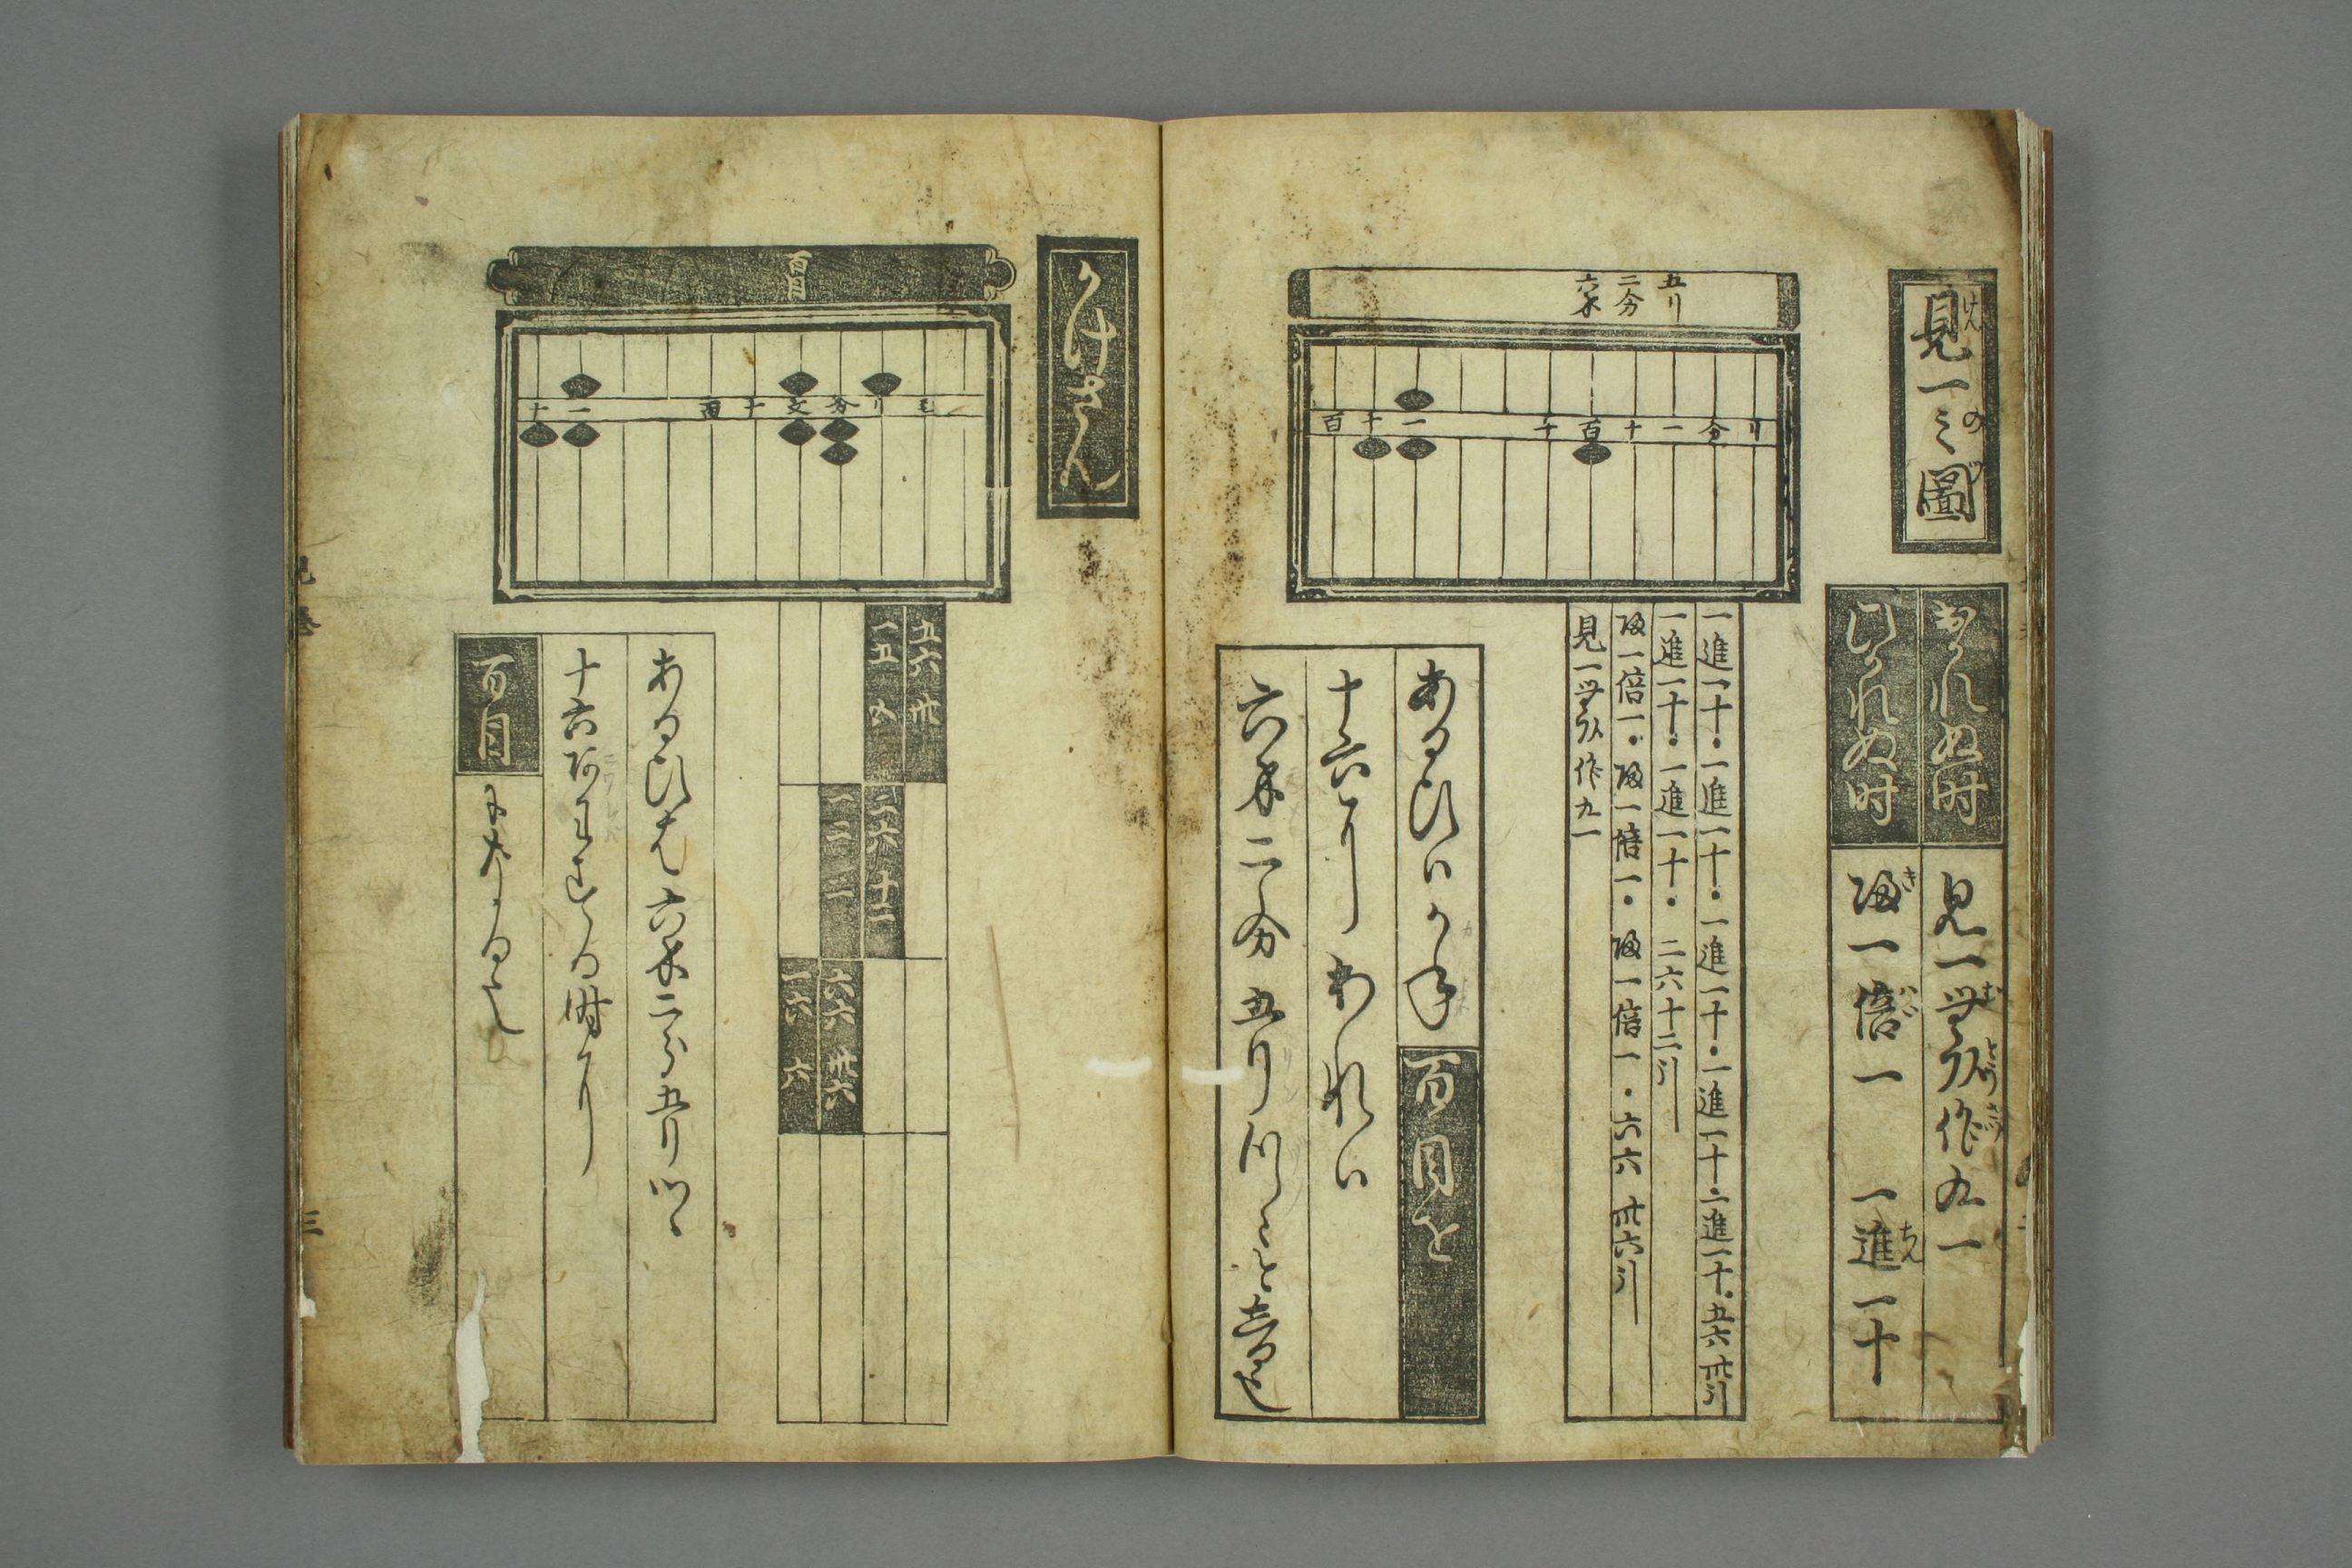 見一之圖
わられぬ時 見一無頭作九一
ひかれぬ時 帰一倍一 一進一十
五リ
二分
六匁
百 十 一 千 百 十 一 分 リ
一進一十・一進一十・一進一十・一進一十・一進一十・五六卅引
一進一十・一進一十・二六十二引
帰一倍一・帰一倍一・帰一倍一・六六卅六引
見一無頭作九一
あるひハかね百目を
十六にわれハ
六匁二分五リ
かけさん
百目
十 一 百 十 文 分 リ 毛
五六 卅
一五 五
二六 十二
一二 二
六六 卅六
一六 六
あるひは六匁二分五リ
十六
百目
三